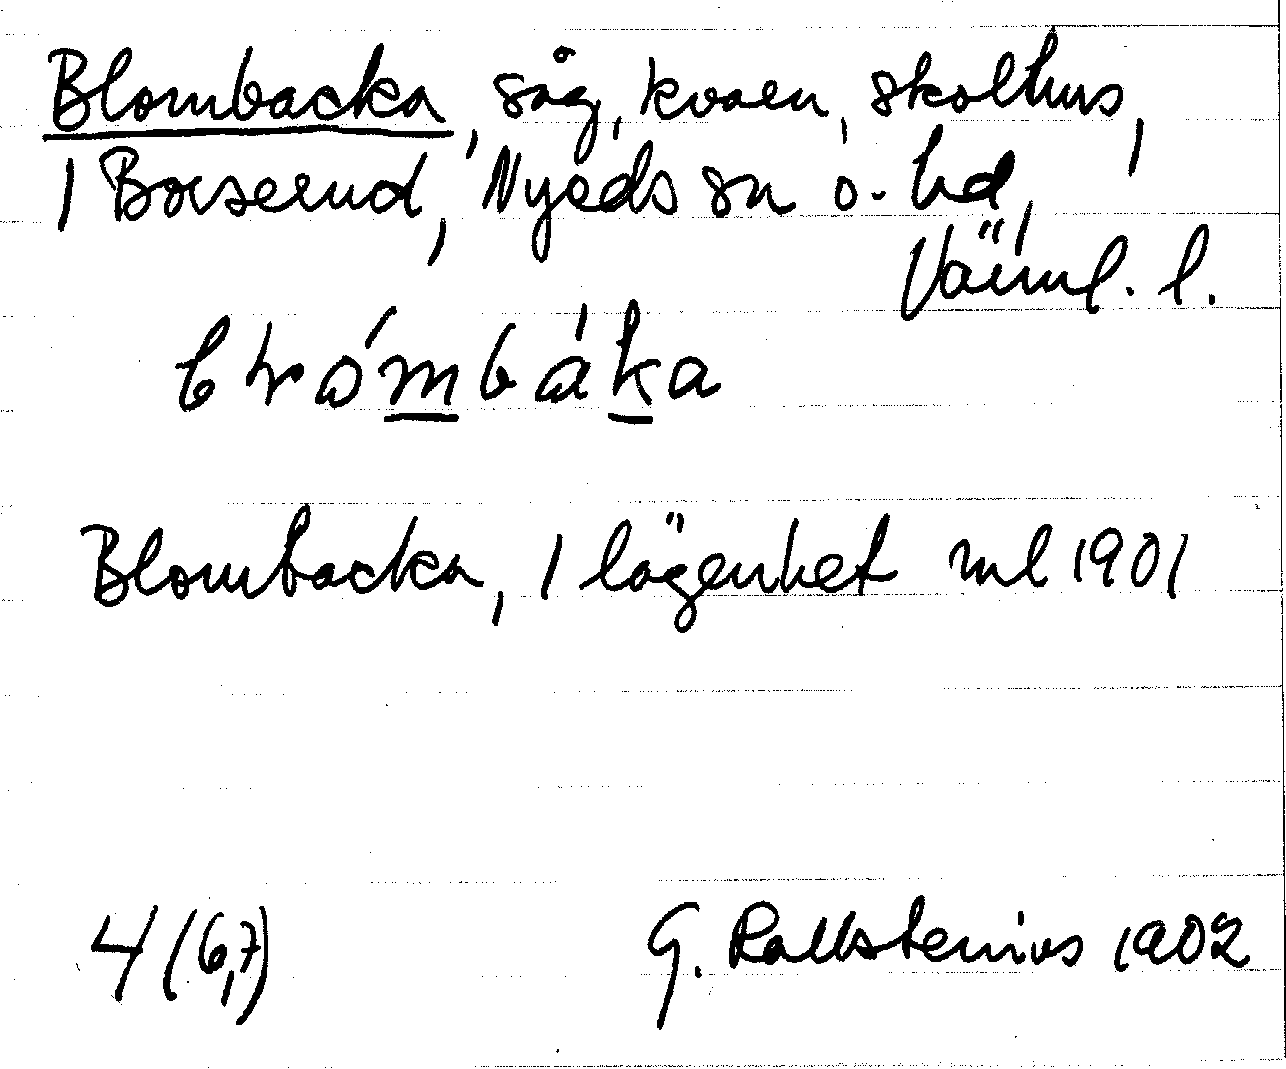 Blombacka, såg, kvarn, skolhus,
/ Borserud, Nyeds sn o. hd,
Värml. l.
Blombacka, 1 lägenhet ml 1901
4 (6,7)
G. Kallstenius 1902